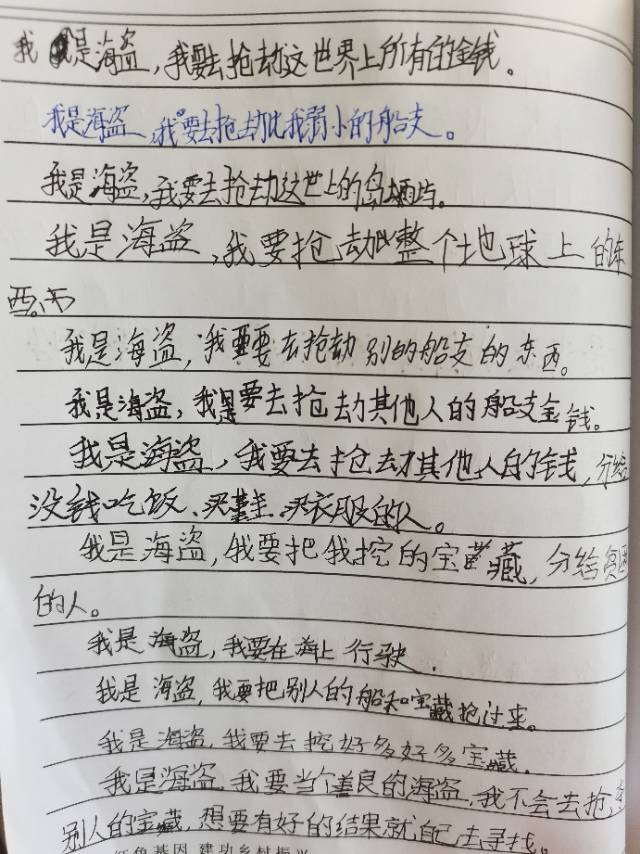 我是海盗，我要去抢劫这世界上所有的金钱。
我是海盗，我要去抢劫比我弱小的船支。
我是海盗，我要去抢劫这世上的岛屿。
我是海盗，我要抢劫整个地球上的东
西。
我是海盗，我要去抢劫别的船支的东西。
我是海盗，我要去抢劫其他人的船支金钱。
我是海盗，我要去抢劫其他人的金钱，分给
没钱吃饭、买鞋、买衣服的人。
我是海盗，我要把我挖的宝藏，分给贫困
的人。
我是海盗，我要在海上行驶.
我是海盗，我要把别人的船和宝藏抢过来。
我是海盗，我要去挖好多好多宝藏.
我是海盗，我要当个善良的海盗，我不会去抢
别人的宝藏，想要有好的结果就自己去寻找。
红色基因 建功乡村振兴